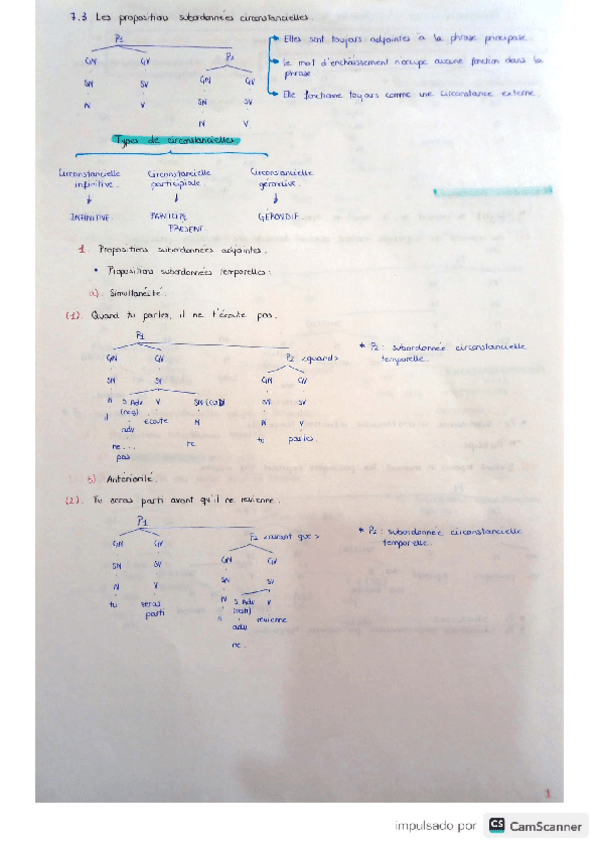 7.3 Les propositions subordonnées circonstancielles.
P1
GN GV P2
SN SV GN GV
N V SN SV
N V
Elles sont toujours adjointes à la phrase principale.
Le mot d'enchaissement n'occupe aucune fonction dans la
phrase
Elle fonctionne toujours comme une circonstance externe.
Types de circonstancielles
Circonstancielle infinitive. Circonstancielle participiale Circonstancielle gérondive.
INFINITIVE. PARTICIPE PRESENT. GÉRONDIF.
1. Propositions subordonnées adjointes.
• Propositions subordonnées temporelles:
a). Simultanéité.
(1). Quand tu parles, il ne t'écoute pas.
P1
GN GV P2 <quand>
SN SV GN GV
N S.Adv V SN (COD) SN SV
il (nég) écoute N N V
adv te tu parles.
ne...
pas
* P2: subordonnée circonstancielle
temporelle.
b) Antériorité.
(2). Tu seras parti avant qu'il ne revienne.
P1
GN GV P2 <avant que>
SN SV GN GV
N V SN SV
tu seras parti N S.Adv V
il revienne
adv
ne.
* P2: subordonnée circonstancielle
temporelle.
1
impulsado por CS CamScanner